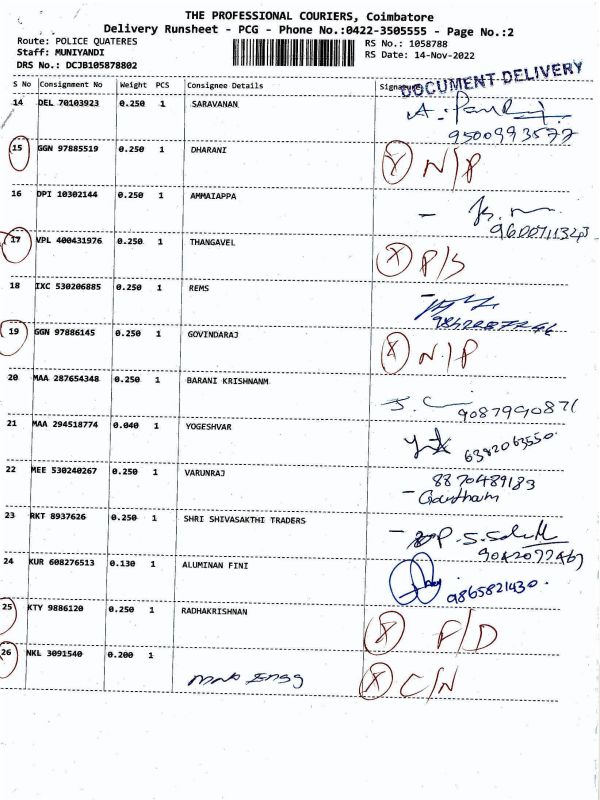 THE PROFESSIONAL COURIERS, Coimbatore
Delivery Runsheet - PCG - Phone No.:0422-3505555 - Page No.:2
Route: POLICE QUATERES RS No.: 1058788
Staff: MUNIYANDI RS Date: 14-Nov-2022
DRS No.: DCJB105878802
DOCUMENT DELIVERY
S No Consignment No Weight PCS Consignee Details Signature
14 DEL 70103923 0.250 1 SARAVANAN
9500993577
15 GGN 97885519 0.250 1 DHARANI X N/P
16 DPI 10302144 0.250 1 AMMAIAPPA
9600711343
17 VPL 400431976 0.250 1 THANGAVEL X P/S
18 IXC 530206885 0.250 1 REMS
19 GGN 97886145 0.250 1 GOVINDARAJ X N/P
20 MAA 287654348 0.250 1 BARANI KRISHNANM
9087990871
21 MAA 294518774 0.040 1 YOGESHVAR
6382063550
22 MEE 530240267 0.250 1 VARUNRAJ 8870489183
Gautham
23 RKT 8937626 0.250 1 SHRI SHIVASAKTHI TRADERS
9042092467
24 KUR 608276513 0.130 1 ALUMINAN FINI
9865821430.
25 KTY 9886120 0.250 1 RADHAKRISHNAN X F/D
26 NKL 3091540 0.200 1 X C/N